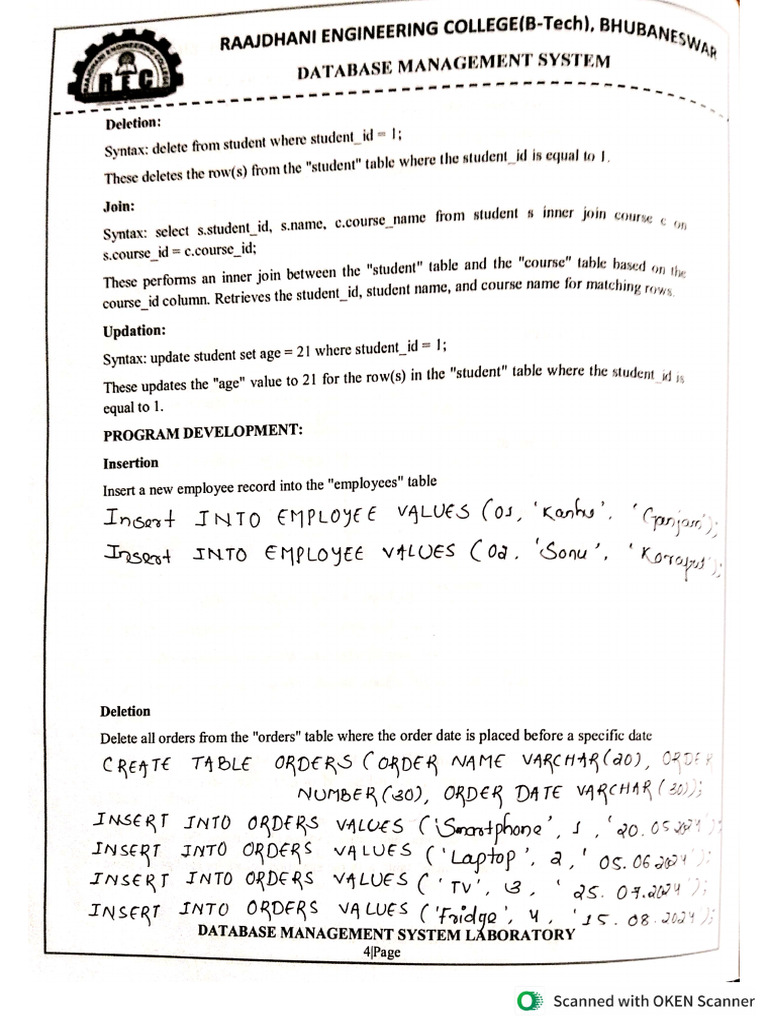 RAAJDHANI ENGINEERING COLLEGE(B-Tech), BHUBANESWAR
DATABASE MANAGEMENT SYSTEM
RAAJDHANI ENGINEERING COLLEGE
R E C
Deletion:
Syntax: delete from student where student_id = 1;
These deletes the row(s) from the "student" table where the student_id is equal to 1.
Join:
Syntax: select s.student_id, s.name, c.course_name from student s inner join course c on
s.course_id = c.course_id;
These performs an inner join between the "student" table and the "course" table based on the
course_id column. Retrieves the student_id, student name, and course name for matching rows.
Updation:
Syntax: update student set age = 21 where student_id = 1;
These updates the "age" value to 21 for the row(s) in the "student" table where the student_id is
equal to 1.
PROGRAM DEVELOPMENT:
Insertion
Insert a new employee record into the "employees" table
Insert INTO EMPLOYEE VALUES (01, 'Kanhu', 'Ganjam');
Insert INTO EMPLOYEE VALUES (02, 'Sonu', 'Koraput');
Deletion
Delete all orders from the "orders" table where the order date is placed before a specific date
CREATE TABLE ORDERS (ORDER NAME VARCHAR(20), ORDER
NUMBER(30), ORDER DATE VARCHAR(30));
INSERT INTO ORDERS VALUES ('Smartphone', 1, '20.05.2024');
INSERT INTO ORDERS VALUES ('Laptop', 2, '05.06.2024');
INSERT INTO ORDERS VALUES ('TV', 3, '25.07.2024');
INSERT INTO ORDERS VALUES ('Fridge', 4, '15.08.2024');
DATABASE MANAGEMENT SYSTEM LABORATORY
4|Page
Scanned with OKEN Scanner